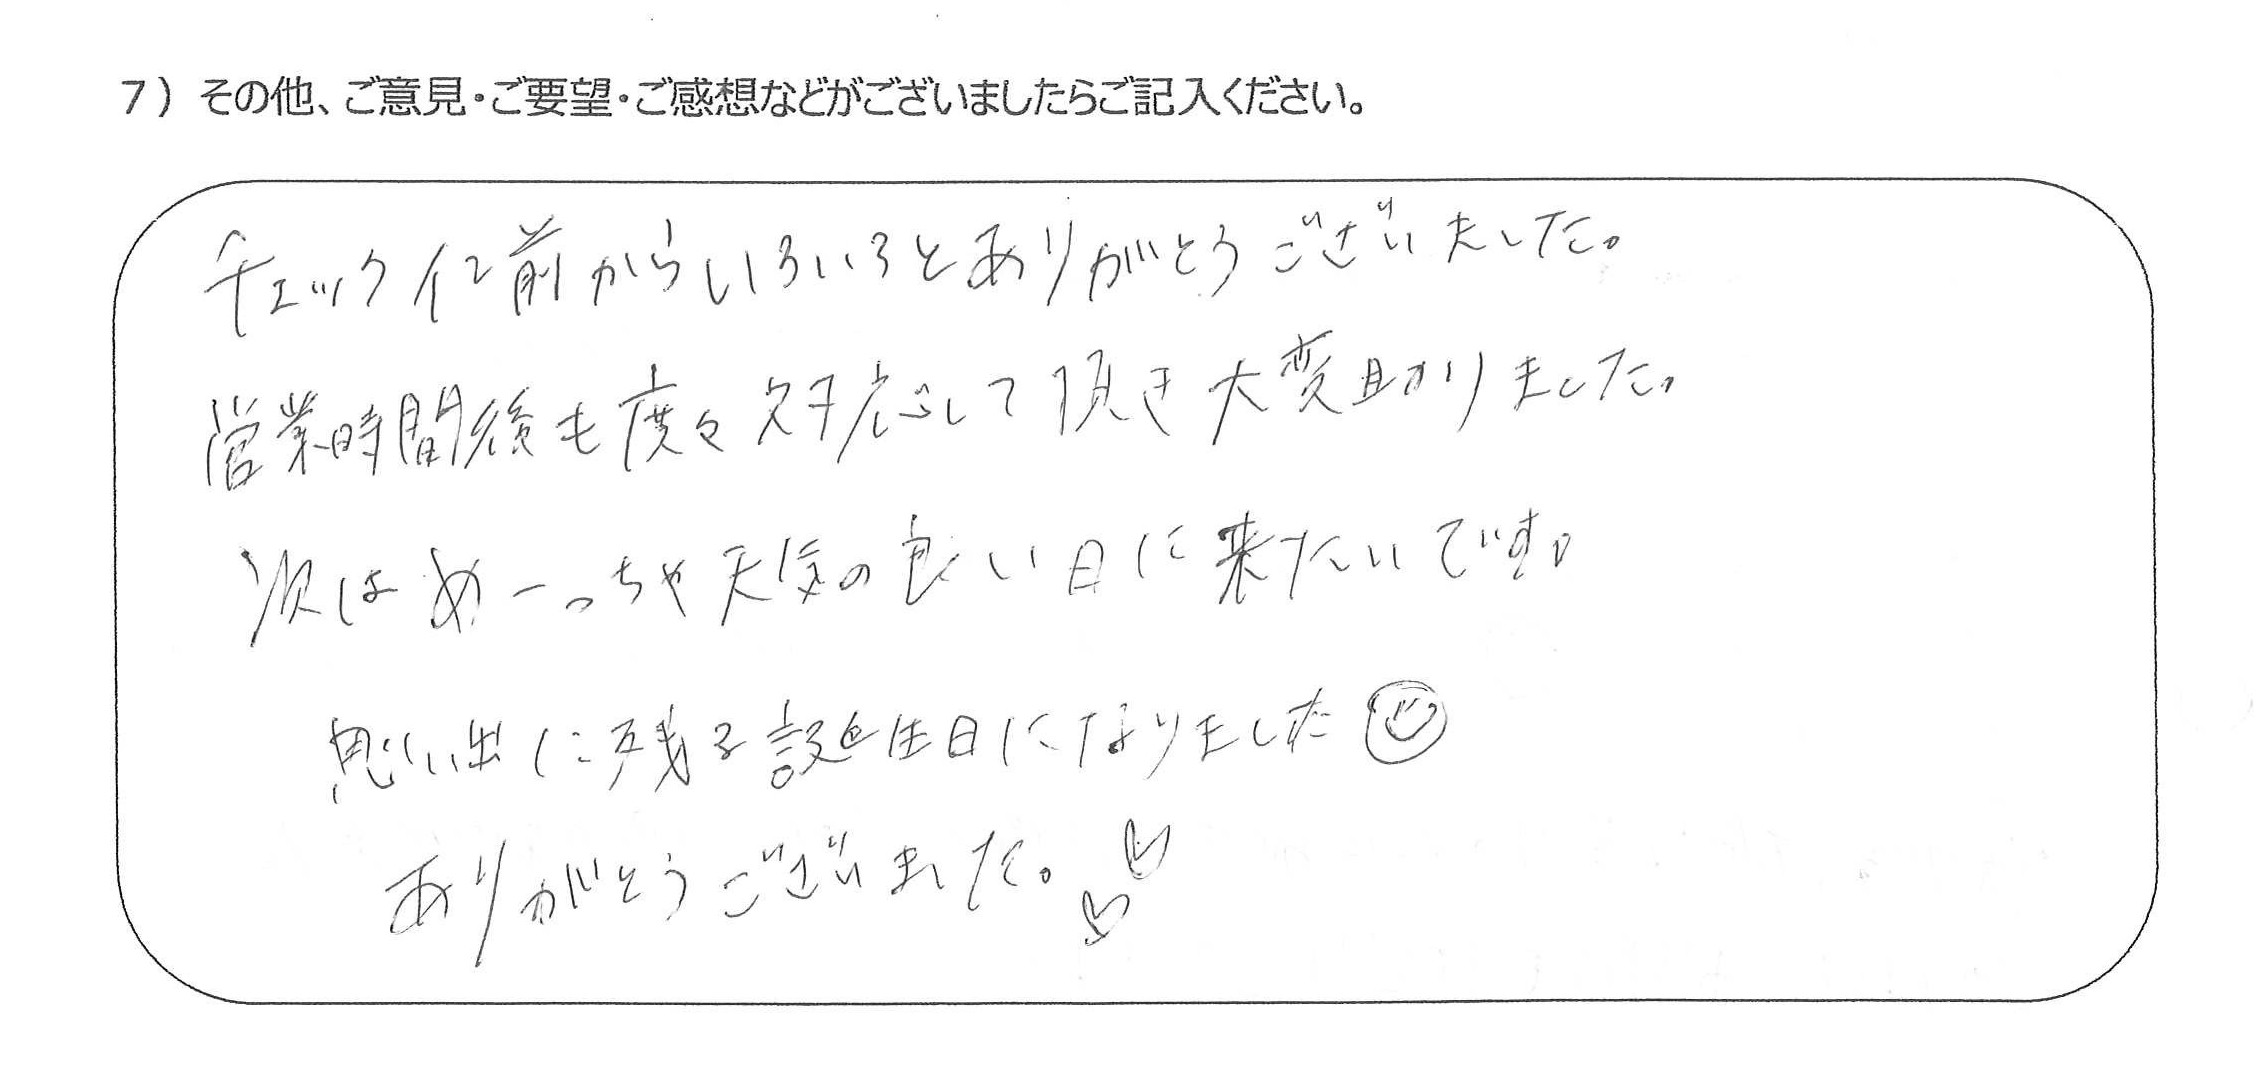 7）その他、ご意見・ご要望・ご感想などがございましたらご記入ください。
チェックイン前からいろいろとありがとうございました。
営業時間後も度々対応して頂き大変助かりました。
次はめーっちゃ天気の良い日に来たいです。
思い出に残る誕生日になりました
ありがとうございました。